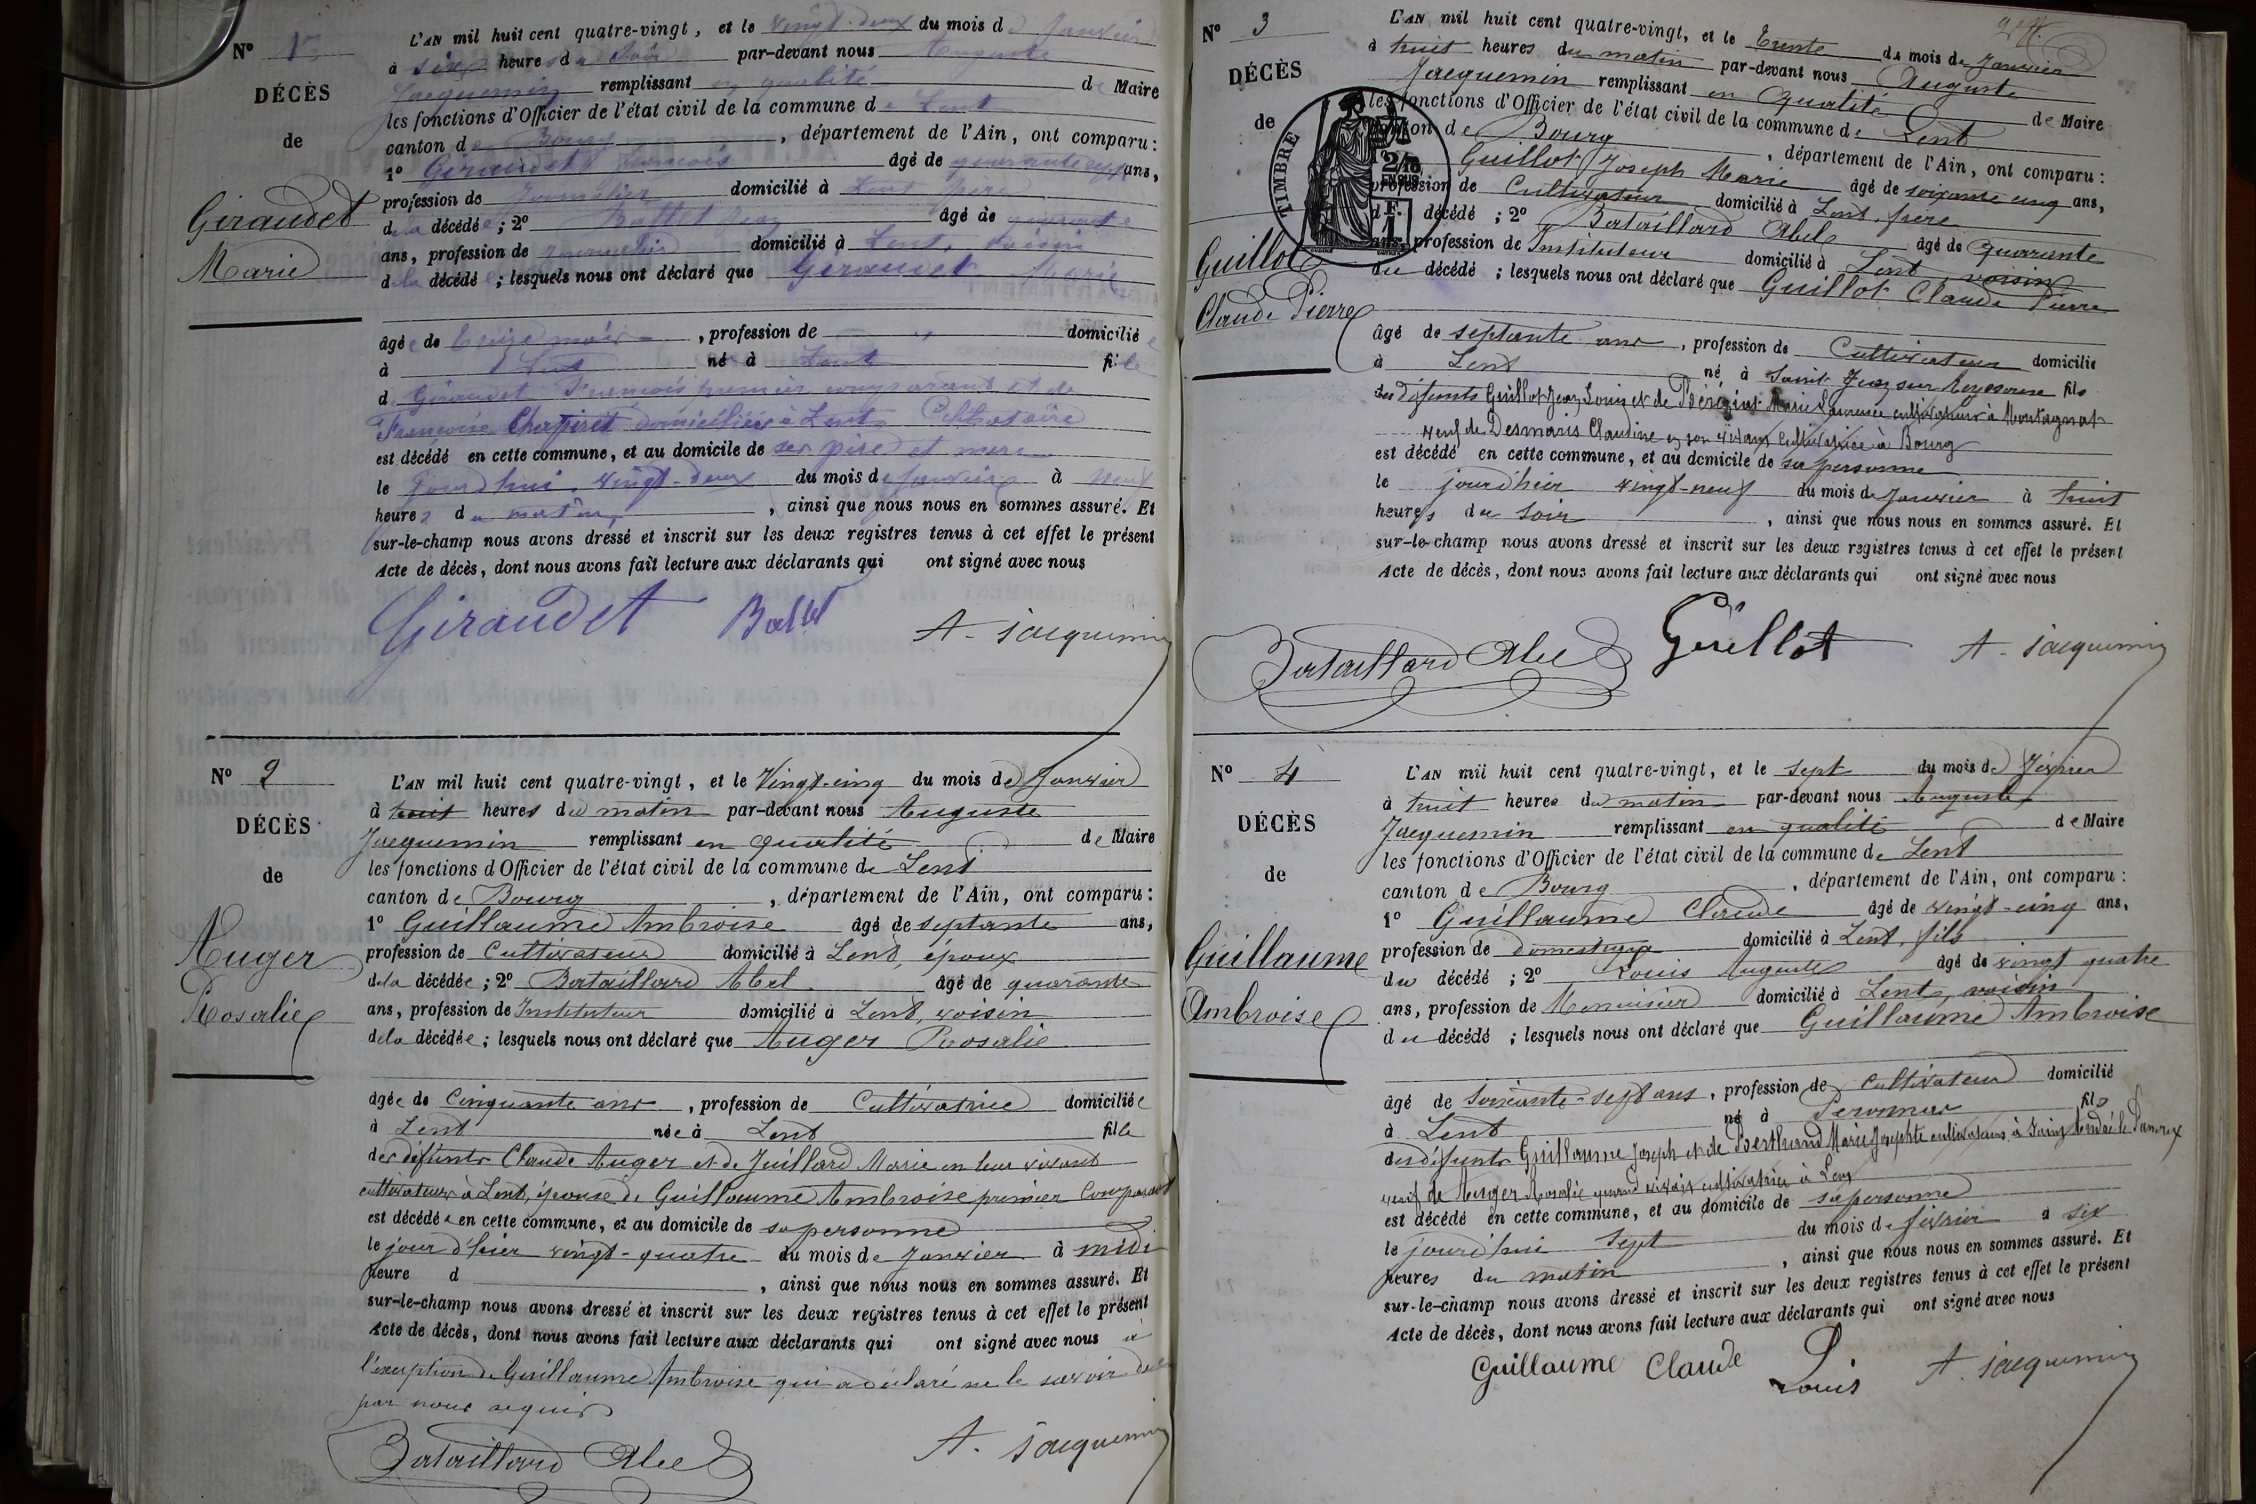 Nº 1
DÉCÈS
de
Giraudet
Marie
L'AN mil huit cent quatre-vingt, et le vingt-deux du mois de Janvier
à six heures du soir par-devant nous Auguste
Jacquemin remplissant en qualité de Maire
les fonctions d'Officier de l'état civil de la commune de Lent
canton de Bourg, département de l'Ain, ont comparu:
1º Giraudet François âgé de quarante ans,
profession de Journalier domicilié à Lent père
de la décédée; 2º Battet âgé de quarante
ans, profession de domicilié à Lent, voisin
de la décédée; lesquels nous ont déclaré que Giraudet Marie
âgée de treize mois, profession de domiciliée
à Lent né à Lent fille
de Giraudet François premier comparant et de
Françoise Chapiret domiciliés à Lent. Célibataire
est décédé en cette commune, et au domicile de ses père et mère
le jourd'hui vingt-deux du mois de janvier à neuf
heures du matin, ainsi que nous nous en sommes assuré. Et
sur-le-champ nous avons dressé et inscrit sur les deux registres tenus à cet effet le présent
Acte de décès, dont nous avons fait lecture aux déclarants qui ont signé avec nous
Giraudet Battet A. Jacquemin
Nº 2
DÉCÈS
de
Auger
Rosalie
L'AN mil huit cent quatre-vingt, et le Vingt-cinq du mois de Janvier
à huit heures du matin par-devant nous Auguste
Jacquemin remplissant en qualité de Maire
les fonctions d'Officier de l'état civil de la commune de Lent
canton de Bourg, département de l'Ain, ont comparu:
1º Guillaume Ambroise âgé de septante ans,
profession de Cultivateur domicilié à Lent, époux
de la décédée; 2º Bataillard Abel âgé de quarante
ans, profession de Instituteur domicilié à Lent, voisin
de la décédée; lesquels nous ont déclaré que Auger Rosalie
âgée de Cinquante ans, profession de Cultivatrice domiciliée
à Lent née à Lent fille
des défunts Claude Auger et de Juillard Marie en leur vivant
cultivateurs à Lent, épouse de Guillaume Ambroise premier Comparant
est décédée en cette commune, et au domicile de sa personne
le jour d'hier vingt-quatre du mois de Janvier à midi
heure d , ainsi que nous nous en sommes assuré. Et
sur-le-champ nous avons dressé et inscrit sur les deux registres tenus à cet effet le présent
Acte de décès, dont nous avons fait lecture aux déclarants qui ont signé avec nous à
l'exception de Guillaume Ambroise qui a déclaré ne le savoir de
par nous requis
Bataillard Abel A. Jacquemin
Nº 3
DÉCÈS
de
Guillot
Claude Pierre
TIMBRE
L'AN mil huit cent quatre-vingt, et le Trente du mois de Janvier
à huit heures du matin par-devant nous Auguste
Jacquemin remplissant en qualité de Maire
les fonctions d'Officier de l'état civil de la commune de Lent
canton de Bourg, département de l'Ain, ont comparu:
1º Guillot Joseph Marie âgé de soixante cinq ans,
profession de Cultivateur domicilié à Lent, frère
du décédé; 2º Bataillard Abel âgé de quarante
ans, profession de Instituteur domicilié à Lent voisin
du décédé; lesquels nous ont déclaré que Guillot Claude Pierre
âgé de septante ans, profession de Cultivateur domicilié
à Lent né à Saint Juan sur Reyssouze fils
des défunts Guillot Jean Louis et de Pérégiat Marie Laurence cultivateurs à Montagnat
veuf de Desmaris Claudine en son vivant cultivatrice à Bourg
est décédé en cette commune, et au domicile de sa personne
le jourd'hier vingt-neuf du mois de Janvier à huit
heures du soir, ainsi que nous nous en sommes assuré. Et
sur-le-champ nous avons dressé et inscrit sur les deux registres tenus à cet effet le présent
Acte de décès, dont nous avons fait lecture aux déclarants qui ont signé avec nous
Bataillard Abel Guillot A. Jacquemin
Nº 4
DÉCÈS
de
Guillaume
Ambroise
L'AN mil huit cent quatre-vingt, et le sept du mois de Février
à huit heures du matin par-devant nous Auguste
Jacquemin remplissant en qualité de Maire
les fonctions d'Officier de l'état civil de la commune de Lent
canton de Bourg, département de l'Ain, ont comparu:
1º Guillaume Claude âgé de vingt-cinq ans,
profession de domestique domicilié à Lent, fils
du décédé; 2º Louis Auguste âgé de vingt quatre
ans, profession de Menuisier domicilié à Lent, voisin
du décédé; lesquels nous ont déclaré que Guillaume Ambroise
âgé de Soixante-sept ans, profession de Cultivateur domicilié
à Lent né à Peronnas fils
des défunts Guillaume Joseph et de Berthand Marie Josephte cultivateurs à Saint André le Panoux
veuf de Auger Rosalie quand vivait cultivatrice à Lent
est décédé en cette commune, et au domicile de sa personne
le jourd'hui Sept du mois de février à six
heures du matin, ainsi que nous nous en sommes assuré. Et
sur-le-champ nous avons dressé et inscrit sur les deux registres tenus à cet effet le présent
Acte de décès, dont nous avons fait lecture aux déclarants qui ont signé avec nous
Guillaume Claude Louis A. Jacquemin